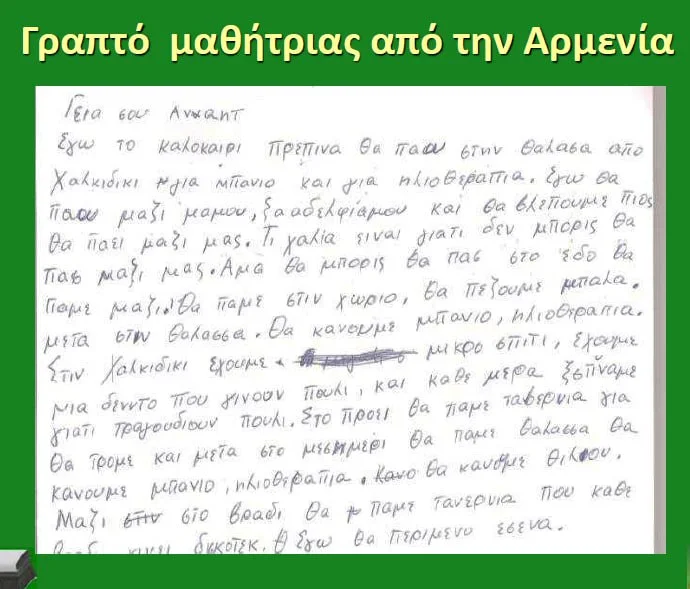 Γραπτό μαθήτριας από την Αρμενία
Γεια σου Αναητ
Εγω το καλοκαιρι πρεπινα θα παω στην θαλασα απο
Χαλκιδικι για μπανιο και για ηλιοθεραπια. Εγω θα
παω μαζι μαμου, ξααδελφιαμου και θα βλεπουμε πιος
θα παει μαζι μας. Τι χαλια ειναι γιατι δεν μπορις θα
πας μαζι μας. Αμα θα μπορις θα πας στο εδο θα
παμε μαζι! θα παμε στιν χωριο, θα πεζουμε μπαλα.
μετα στην θαλασσα. Θα κανουμε μπανιο, ηλιοθεραπια.
Στιν Χαλκιδικι εχουμε μικρο σπιτι, εχουμε
μια δεντο που γινουν πουλι, και καθε μερα ξεπναμε
γιατι τραγουδιουν πουλι. Στο προει θα παμε ταβερνια για
θα τρομε και μετα στο μεσημερι θα παμε θαλασσα θα
κανουμε μπανιο, ηλιοθεραπια. θα κανουμε
Μαζι στο βραδι θα παμε τανερνια που καθε
Εγω θα περιμενο εσενα.